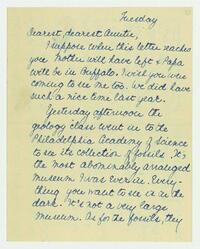 Tuesday
Dearest, dearest Auntie,
I suppose when this letter reaches
you Mother will have left & Papa
will be in Buffalo. I wish you were
coming to see me too. We did have
such a nice time last year.
Yesterday afternoon the
geology class went in to the
Philadelphia Academy of Science
to see its collection of fossils. It's
the most abominably arranged
museum I was ever in. Every-
thing you want to see is in the
dark. It's not a very large
museum. As for the fossils, they